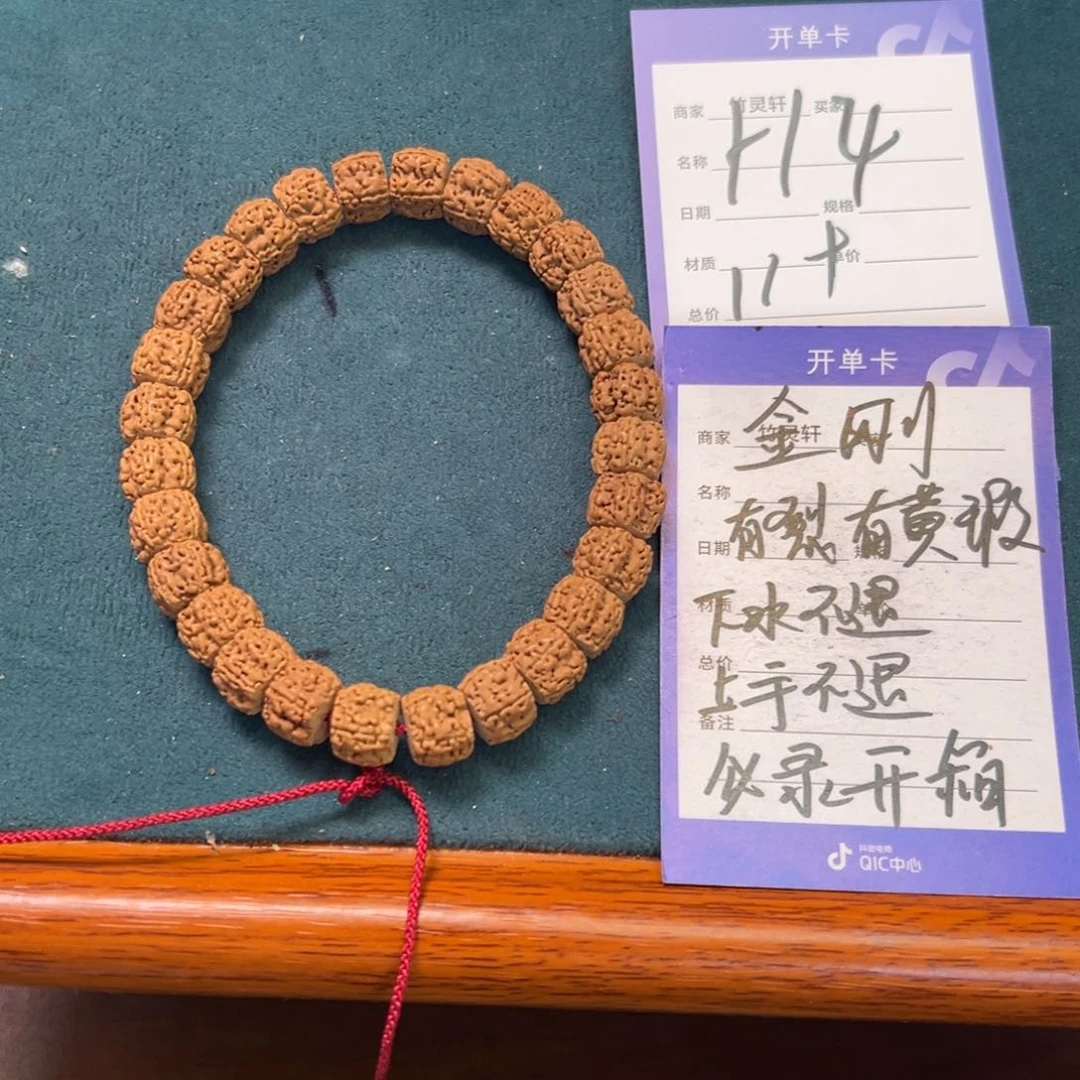 开单卡
商家 竹灵轩 买家
H14
名称
日期 规格
材质 单价
11+
总价
开单卡
商家 竹灵轩
金刚
名称
有裂有黄瑕
日期
材质
下水不退
总价
上手不退
备注
必录开箱
抖音电商
QIC中心